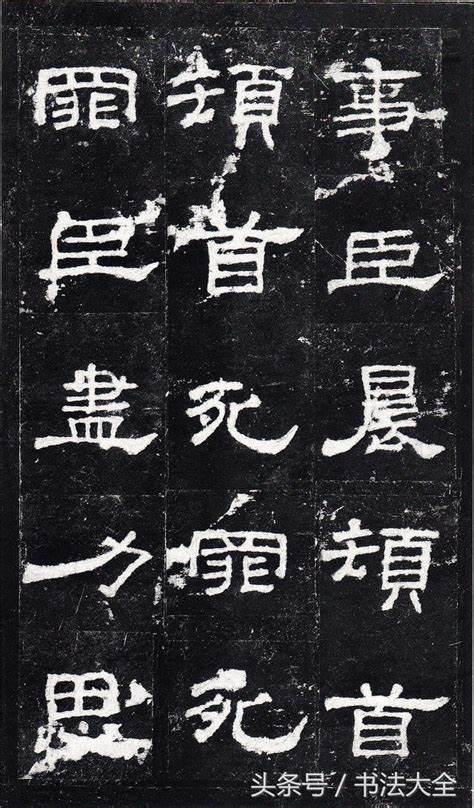 事臣晨頓首
頓首死罪死
罪臣盡力思
头条号／书法大全